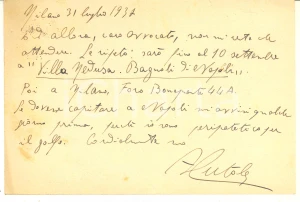 Milano 31 luglio 1934
Ed allora, caro avvocato, non mi resta che
attendere. Le ripeto: sarò fino al 10 settembre
a "Villa Medusa. Bagnoli di Napoli".
Poi a Milano, Foro Bonaparte 44A.
Se dovesse capitare a Napoli mi avvisi qualche
giorno prima, perché io sono peripatetico per
il golfo. Cordialmente suo